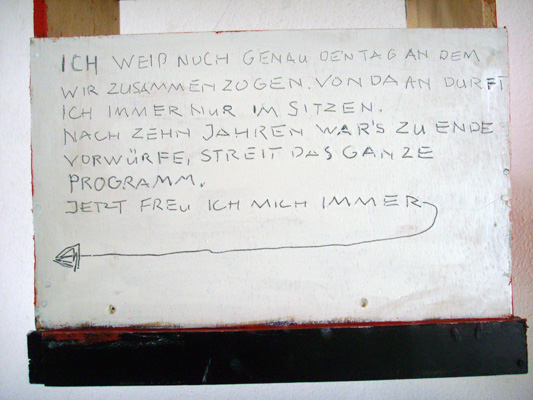 ICH WEIß NOCH GENAU DEN TAG AN DEM
WIR ZUSAMMENZOGEN. VON DA AN DURFT
ICH IMMER NUR IM SITZEN.
NACH ZEHN JAHREN WAR'S ZU ENDE
VORWÜRFE, STREIT DAS GANZE
PROGRAMM.
JETZT FREU ICH MICH IMMER